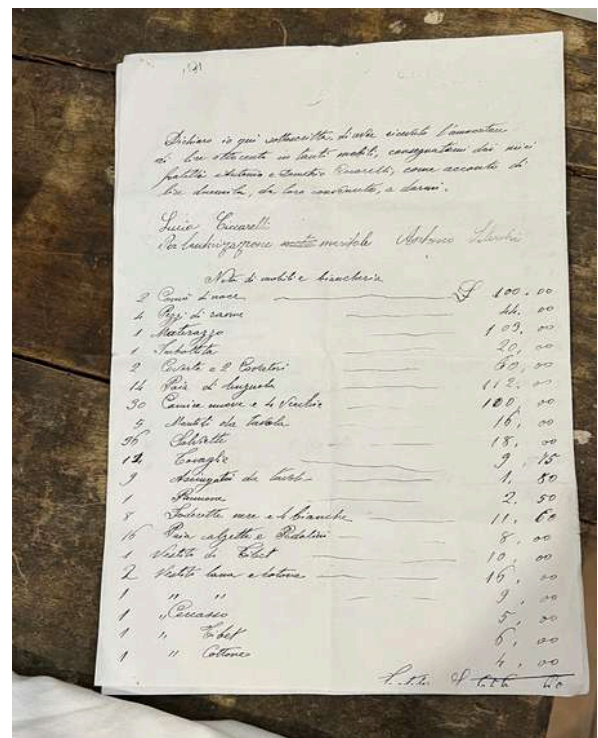 Dichiaro io qui sottoscritta di aver ricevuto l'ammontare
di lire ottocento in tanti mobili, consegnatomi dai miei
fratelli Antonio e Ciccarelli, come acconto di
lire duemila, da loro convenuta, a darmi.
Lucia Ciccarelli
Per maritale Antonio
Nota di mobili e biancheria
2 Comò di noce £ 100.00
4 Pezzi di rame 44.00
1 Materazzo 109.00
1 Imbottita 20,00
2 Coverte e 2 60,00
14 Paia di lenzuola 112,00
30 Camice nuove e 4 Vecchie 100,00
5 Mantili da tavola 16,00
36 Salviette 18.00
12 Tovaglie 9.75
9 Asciugatoi da 1.80
1 2.50
8 nere e 4 bianche 11,60
16 Paia calzette e Pedalini 8.00
1 Vestito di Tibet 10,00
2 Vestito lana e cotone 16,00
1 " " 9,00
1 " 5,00
1 " Tibet 6,00
1 " Cottone 4,00